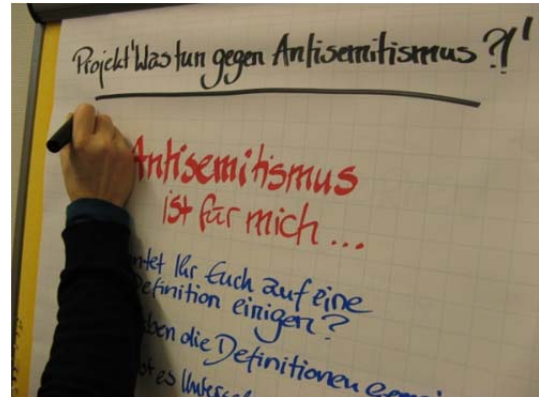 Projekt "Was tun gegen Antisemitismus ?!"
Antisemitismus
ist für mich ...
Ihr Euch auf eine
Definition einigen?
die Definitionen
es